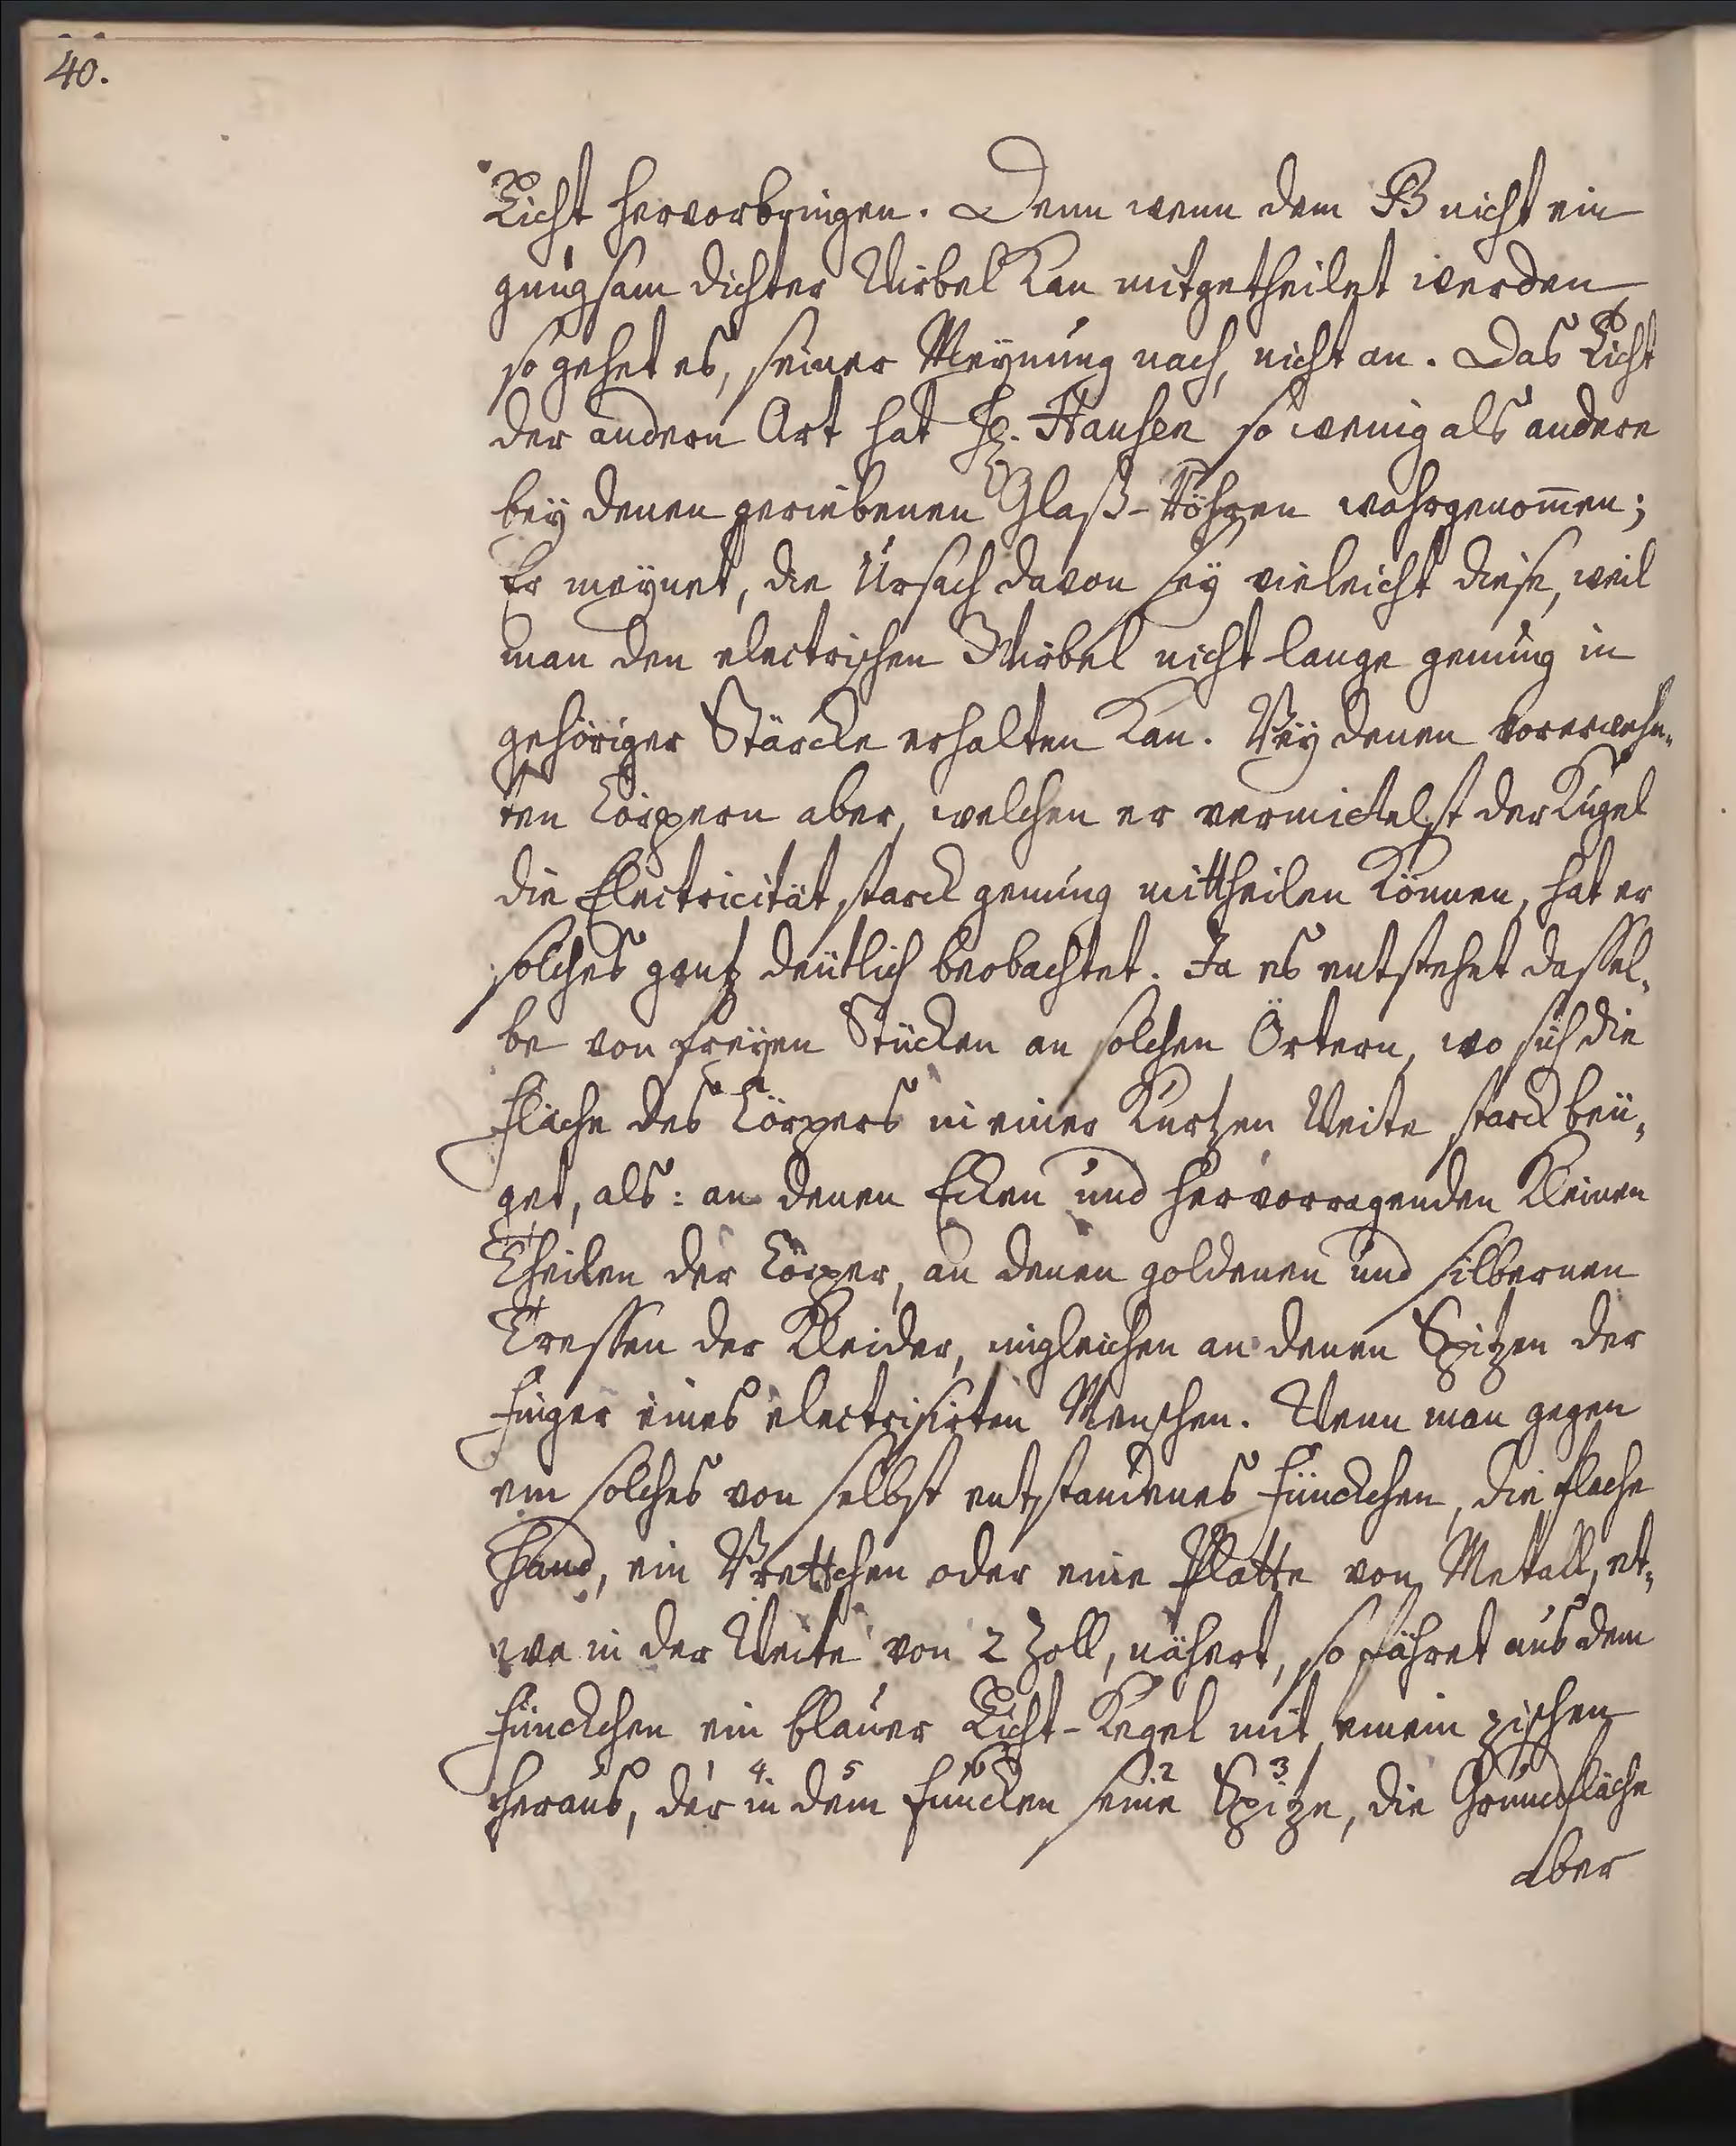 40.
Licht hervorbringen. Denn wenn dem B nicht ein
gnugsam dichter Wirbel kan mitgetheilet werden,
so gehet es, seiner Meynung nach, nicht an. Das Licht
der andern Art hat H. Hausen so wenig als andere
bey denen geriebenen Glaß-Röhren wahrgenom̅en;
Er meynet, die Ursach davon sey vieleicht diese, weil
man den electrischen Wirbel nicht lange genung in
gehöriger Stärcke erhalten kan. Bey denen vorerwehn-
ten Cörpern aber, welchen er vermittelst der Kugel
die Electricität starck genung mittheilen können, hat er
solches gantz deutlich beobachtet. Ja es entstehet dassel-
be von freyen Stücken an solchen Örtern, wo sich die
Fläche des Cörpers in einer kurtzen Weite starck beu-
get, als: an denen Ecken und hervorragenden kleinen
Theilen der Cörper, an denen goldenen und silbernen
Tressen der Kleider, ingleichen an denen Spitzen der
Finger eines electrisirten Menschen. Wenn man gegen
ein solches von selbst entstandenes Fünckchen, die flache
Hand, ein Brettchen oder eine Platte von Metall, et-
wa in der Weite von 2 Zoll, nähert, so fähret aus dem
Fünckchen ein blauer Licht-Kegel mit einem zischen
1 4. 5 6 2 3
heraus, der in dem Funcken seine Spitze, die Grundfläche
aber